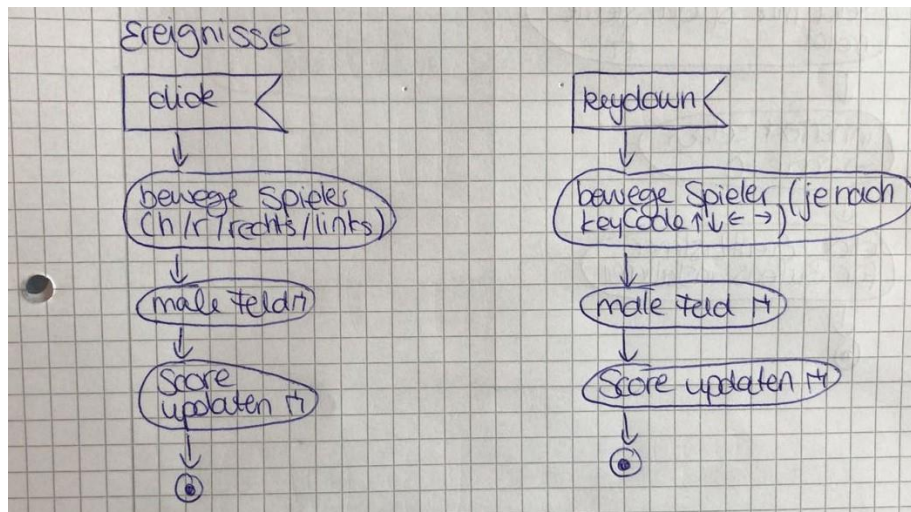 Ereignisse
click
bewege Spieler
(h/r/rechts/links)
male Feld
Score
updaten
keydown
bewege Spieler (je nach
keyCode ↑↓← →)
male Feld
Score updaten